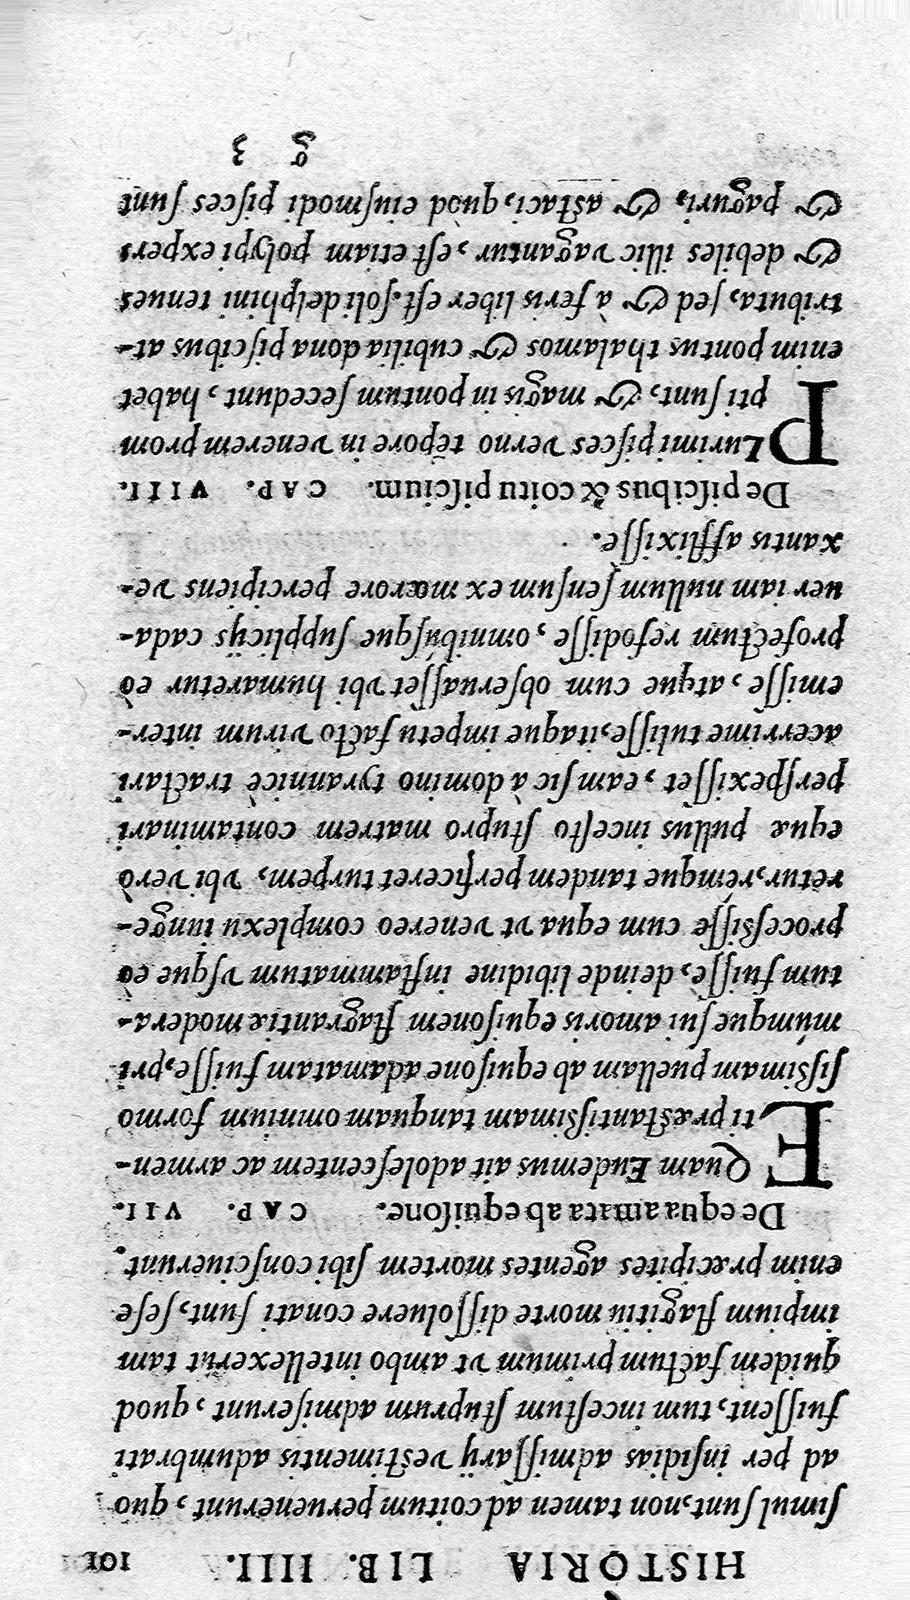 HISTORIA LIB. IIII. 101
simul sunt, non tamen ad coitum peruenerunt, quo
ad per insidias admissarij vestimentis adumbrati
fuissent, tum incestum stuprum admiserunt, quod
quidem factum primum vt ambo intellexerũt tam
impium flagitiũ morte dissoluere conati sunt, sese
enim præcipites agentes mortem sibi consciuerunt.
De equa amata ab equisone. CAP. VII.
EQuam Eudemus ait adolescentem ac armen-
ti præstantissimam tanquam omnium formo
sissimam puellam ab equisone adamatam fuisse, pri
múmque sui amoris equisonem flagrantiæ modera-
tum fuisse, deinde libidine inflammatum vsque eò
processisse cum equa vt venereo complexu iunge-
retur, rémque tandem perficeret turpem, vbi verò
equæ pullus incesto stupro matrem contaminari
perspexisset, eam sic à domino tyrannicè tractari
acerrime tulisse, itaque impetu facto virum inter-
emisse, atque cum obseruasset vbi humaretur eò
profectum refodisse, omnibúsque supplicijs cada-
uer iam nullum sensum ex mœrore percipiens ve-
xantis afflixisse.
De piscibus & coitu piscium. CAP. VIII.
PLurimi pisces verno tẽpore in venerem prom
pti sunt, & magis in pontum secedunt, habet
enim pontus thalamos & cubilia dona piscibus at-
tributa, sed & à feris liber est. soli delphini tenues
& debiles illic vagantur, est etiam polypi expers
& paguri, & astaci, quòd eiusmodi pisces sunt
g 3